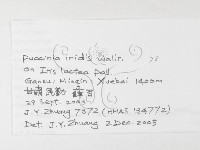 Puccinia iridis Wallr.
on Iris lactea Pall.
Gansu: Minqin Xuebai 1400m
甘肃 民勤 薛百
29 Sept. 2003
J.Y. Zhuang 7372 (HMAS 134772)
Det. J.Y. Zhuang 2 Dec. 2003